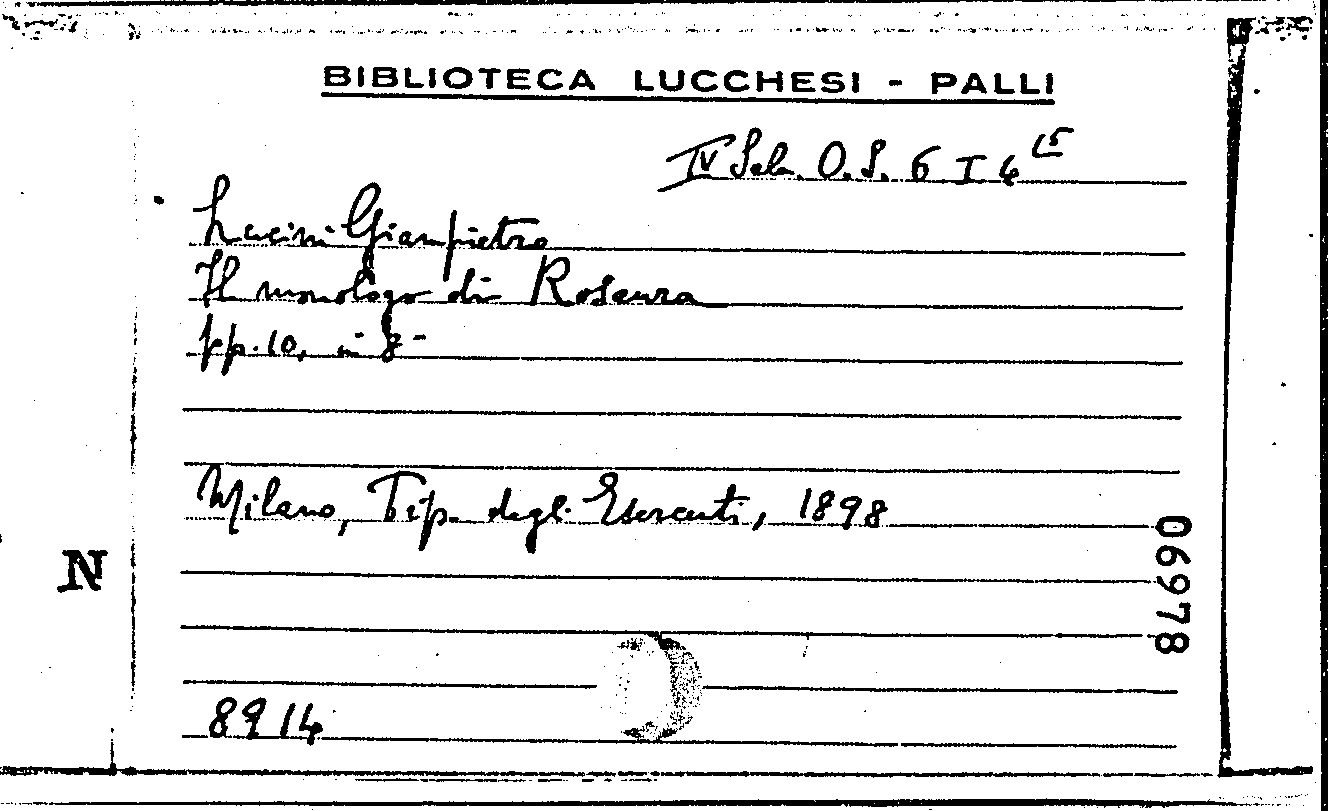 BIBLIOTECA LUCCHESI - PALLI
IV Sela. O.S. 6 I 4 15
Lucini Giampietro
Il monologo di Rosaura
pp. 10, in 8-
Milano, Tip. degli Esercenti, 1898
06978
N
8914